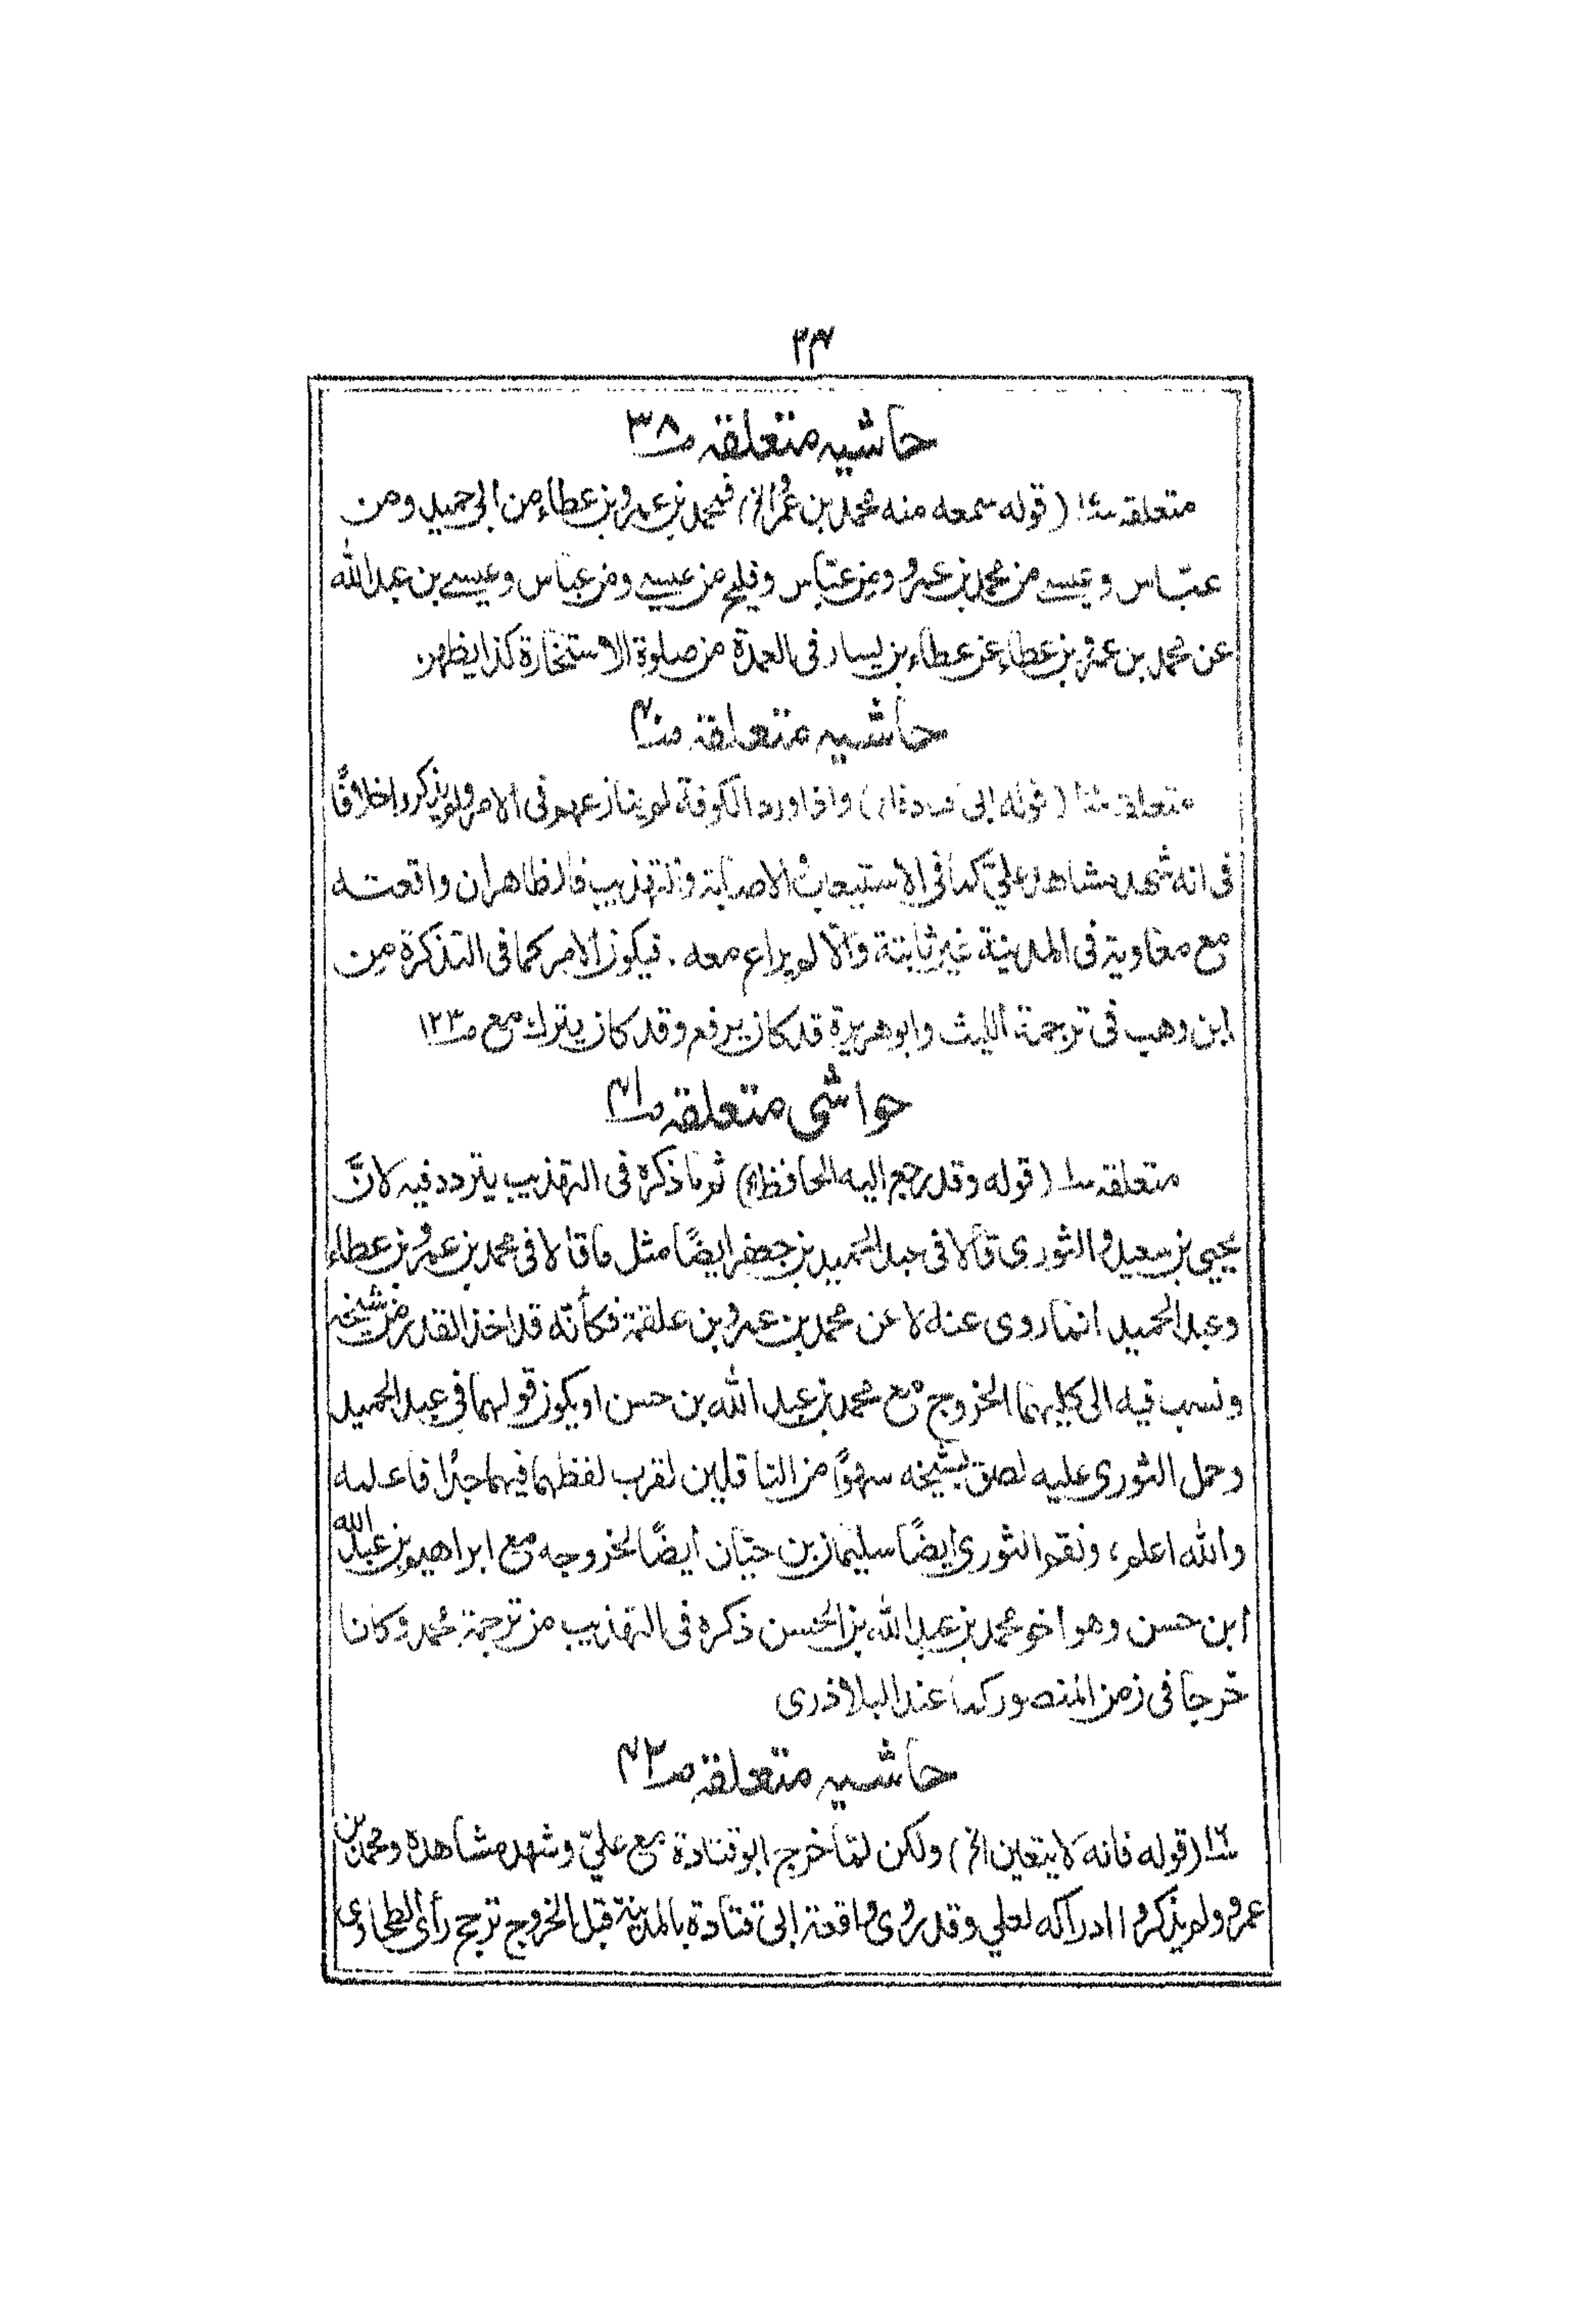 ٣٤
حاشيه متعلقه صـ٣٨
متعلقه (قوله سمعه منه محمد بن عمرو الخ) فمحمد بن عمرو بن عطاء من ابى حميد ومن
عبّاس وعيسے من محمد بن عمرو ومن عبّاس وفليح من عيسے ومن عباس وعيسے بن عبد الله
عن محمد بن عمرو بن عطاء عن عطاء بن يسار فى العمدة من صلوة الاستخارة كذا يظهر
حاشيه متعلقه صـ٤٠
متعلقه (قوله ابى) واذا ورد الكوفة لم ينازعهم فى الامر ولم يذكروا خلافًا
فى انه شهد مشاهد علىّ كما فى الاستيعاب والاصابة والتهذيب فالظاهر ان واقعته
مع معاوية فى المدينة غير ثابتة والّا لم يراع معه. فيكون الامر كما فى التذكرة من
ابن وهب فى ترجمة الليث وابو هريرة قد كان يرفع وقد كان يترك مع صـ١٢٣
حواشى متعلقه صـ٤١
متعلقه سـ١ (قوله وقد رجع اليه الحافظ الخ) ثم ما ذكره فى التهذيب يتردد فيه لانّ
يحيى بن سعيد والثورى قالا فى عبد الحميد بن جعفر ايضًا مثل ما قالا فى محمد بن عمرو بن عطاء
وعبد الحميد انما روى عنه لا عن محمد بن عمرو بن علقمة فكأنّه قد اخذ القدر من شيخه
ونسب فيه الى كليهما الخروج مع محمد بن عبد الله بن حسن او يكون قولهما فى عبد الحميد
وحمل الثورى عليه لصق بشيخه سهوًا من الناقلين لقرب لفظهما فيهما جدًا فاعلمه
والله اعلم، ونقم الثورى ايضًا سليمان بن حيّان ايضًا لخروجه مع ابراهيم بن عبد الله
ابن حسن وهو اخو محمد بن عبد الله بن الحسن ذكره فى التهذيب من ترجمة محمد وكانا
خرجا فى زمن المنصور كما عند البلاذرى
حاشيه متعلقه صـ٤٢
(قوله فانه لا يتعين الخ) ولكن لمّا خرج ابو قتادة مع علىّ وشهد مشاهده ومحمد بن
عمرو ولم يذكروا ادراكه لعلي وقد روى واقعة ابى قتادة بالمدينة قبل الخروج ترجح رأى الطحاوى